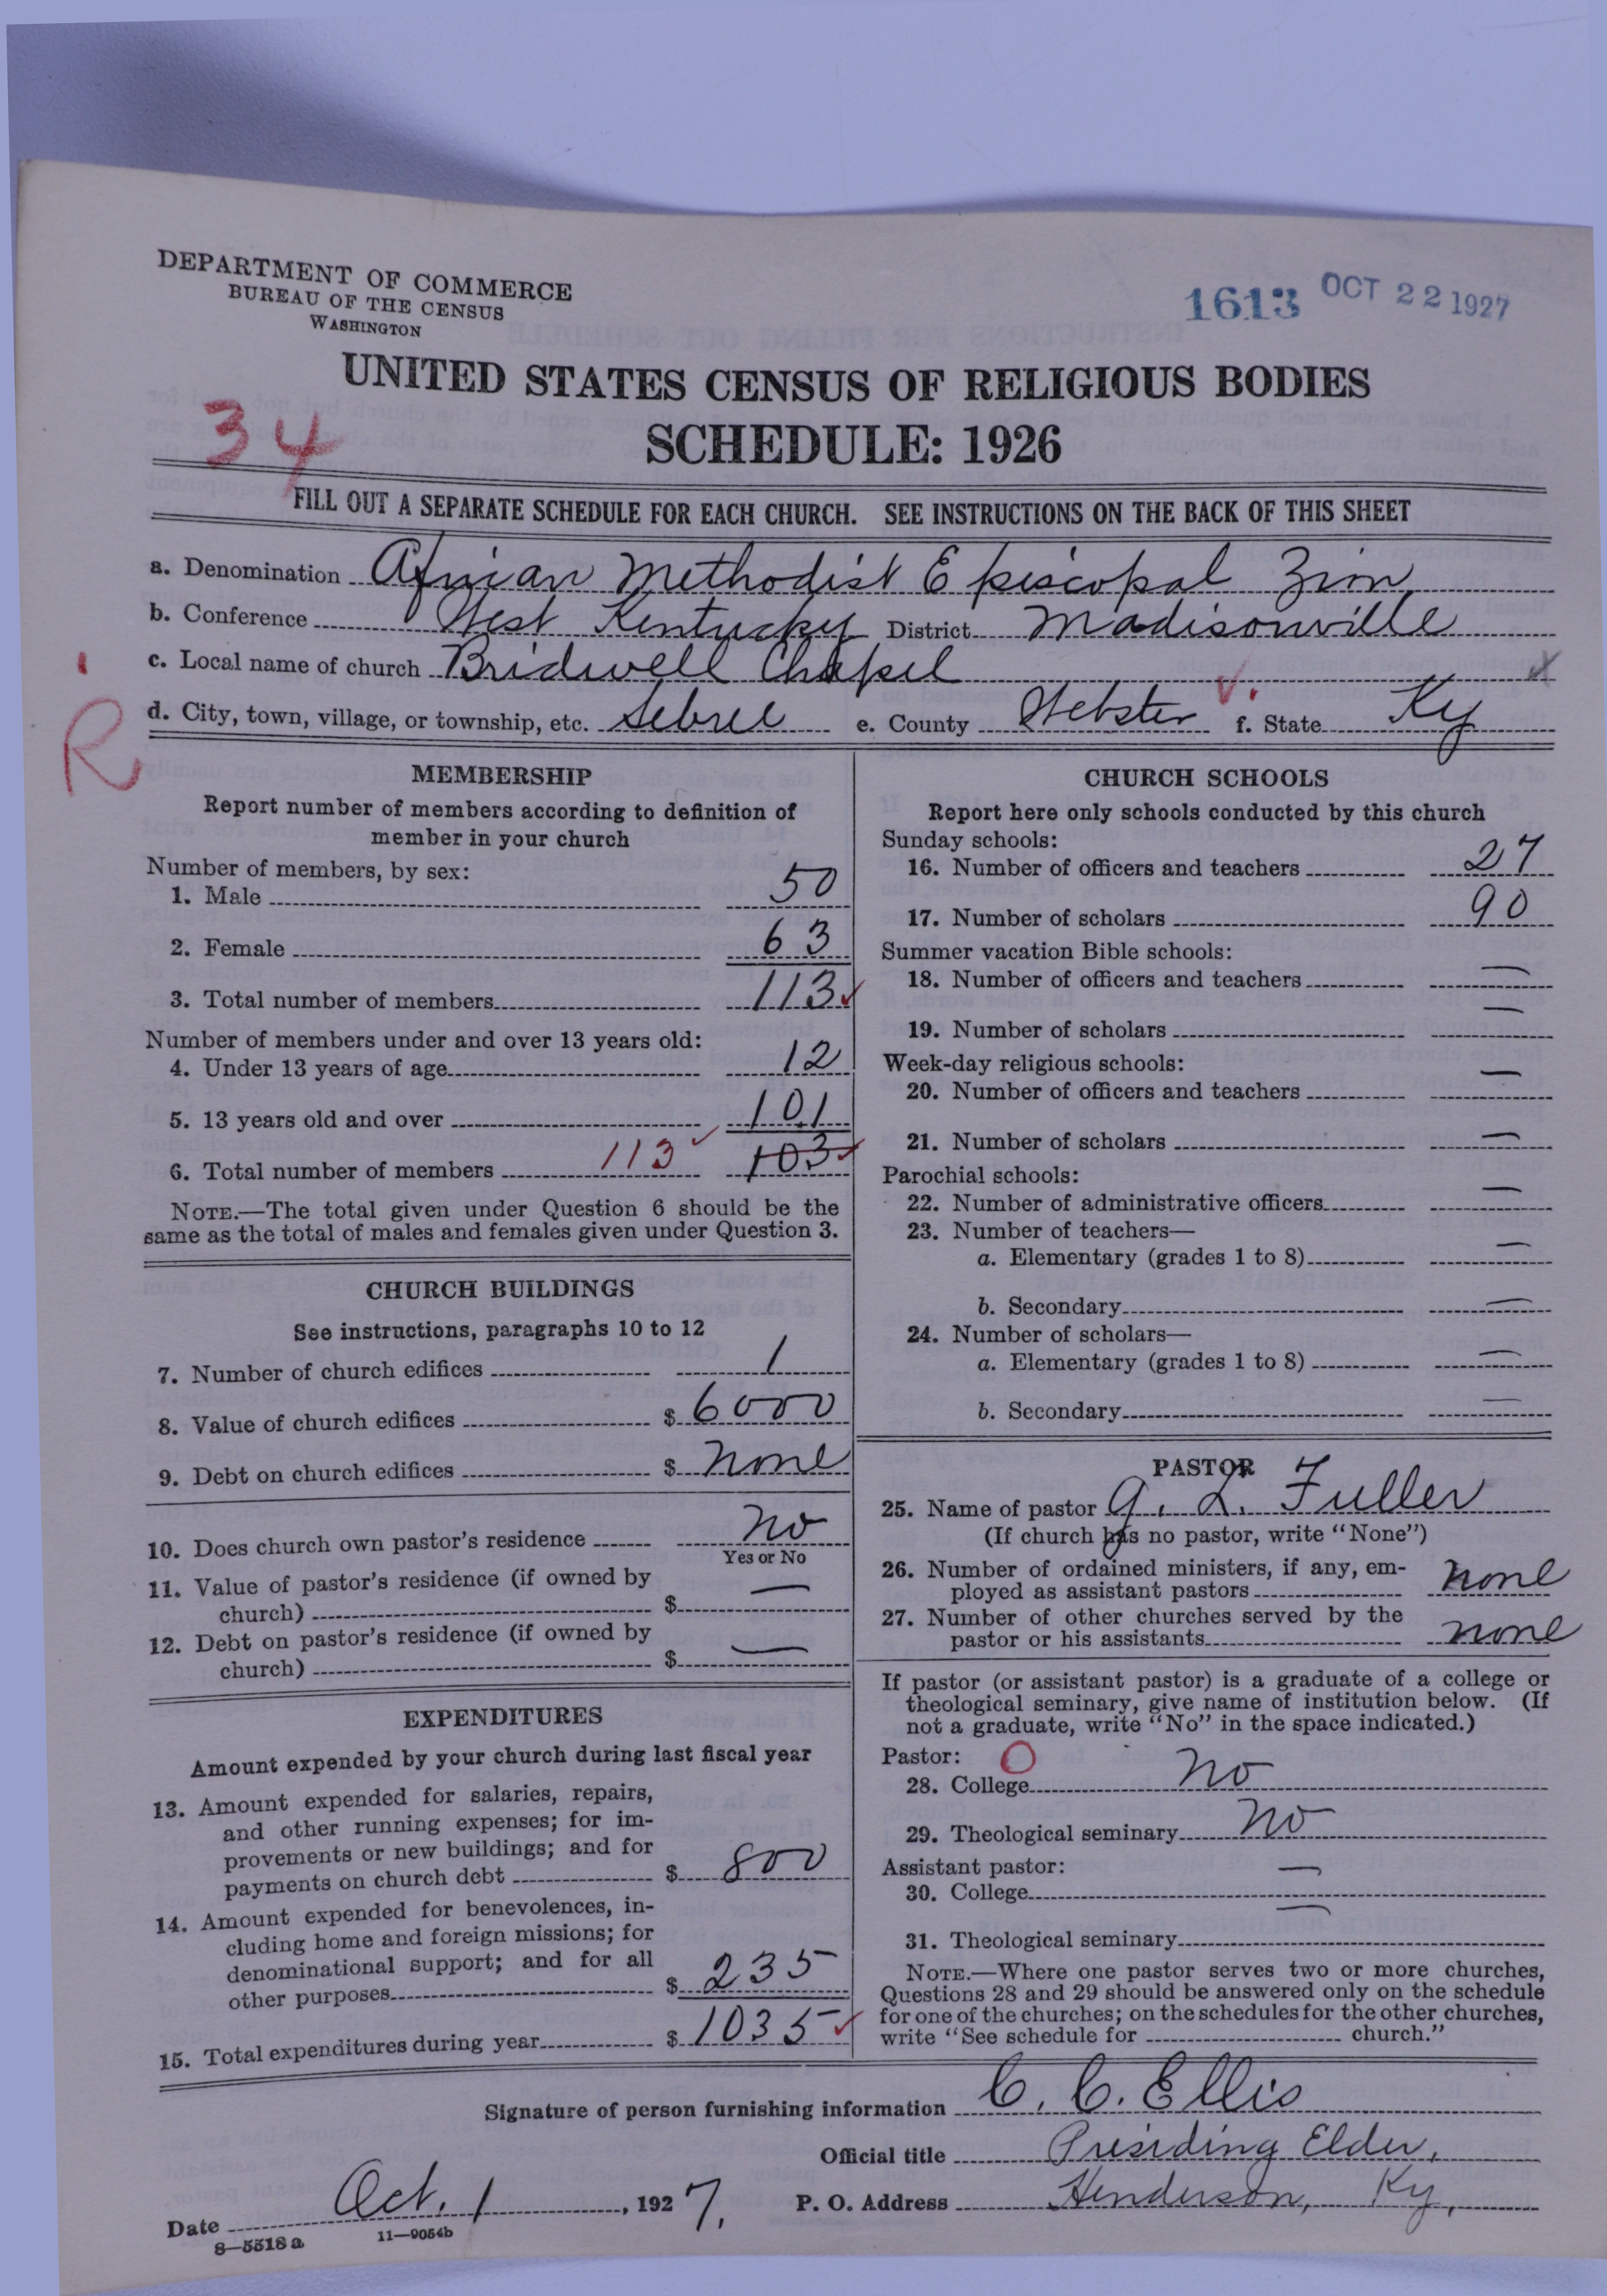 DEPARTMENT OF COMMERCE
BUREAU OF THE CENSUS
WASHINGTON
1613 OCT 22 1927
UNITED STATES CENSUS OF RELIGIOUS BODIES
34
SCHEDULE: 1926
FILL OUT A SEPARATE SCHEDULE FOR EACH CHURCH. SEE INSTRUCTIONS ON THE BACK OF THIS SHEET
a. Denomination African Methodist Episcopal Zion
b. Conference West Kentucky District Madisonville
c. Local name of church Bridwell Chapel
d. City, town, village, or township, etc. Sebree e. County Webster f. State Ky
R
MEMBERSHIP
Report number of members according to definition of
member in your church
Number of members, by sex:
1. Male 50
2. Female 63
3. Total number of members 113
Number of members under and over 13 years old:
4. Under 13 years of age 12
5. 13 years old and over 101
6. Total number of members 113 103
NOTE.—The total given under Question 6 should be the
same as the total of males and females given under Question 3.
CHURCH BUILDINGS
See instructions, paragraphs 10 to 12
7. Number of church edifices 1
8. Value of church edifices $ 6000
9. Debt on church edifices $ none
10. Does church own pastor's residence No
Yes or No
11. Value of pastor's residence (if owned by
church) $ —
12. Debt on pastor's residence (if owned by
church) $ —
EXPENDITURES
Amount expended by your church during last fiscal year
13. Amount expended for salaries, repairs,
and other running expenses; for im-
provements or new buildings; and for
payments on church debt $ 800
14. Amount expended for benevolences, in-
cluding home and foreign missions; for
denominational support; and for all
other purposes $ 235
15. Total expenditures during year $ 1035
CHURCH SCHOOLS
Report here only schools conducted by this church
Sunday schools:
16. Number of officers and teachers 27
17. Number of scholars 90
Summer vacation Bible schools:
18. Number of officers and teachers —
19. Number of scholars —
Week-day religious schools:
20. Number of officers and teachers —
21. Number of scholars —
Parochial schools:
22. Number of administrative officers —
23. Number of teachers—
a. Elementary (grades 1 to 8) —
b. Secondary —
24. Number of scholars—
a. Elementary (grades 1 to 8) —
b. Secondary —
PASTOR
25. Name of pastor G. L. Fuller
(If church has no pastor, write "None")
26. Number of ordained ministers, if any, em-
ployed as assistant pastors none
27. Number of other churches served by the
pastor or his assistants none
If pastor (or assistant pastor) is a graduate of a college or
theological seminary, give name of institution below. (If
not a graduate, write "No" in the space indicated.)
Pastor: O
28. College No
29. Theological seminary No
Assistant pastor:
30. College —
31. Theological seminary —
NOTE.—Where one pastor serves two or more churches,
Questions 28 and 29 should be answered only on the schedule
for one of the churches; on the schedules for the other churches,
write "See schedule for ______ church."
Signature of person furnishing information C. C. Ellis
Official title Presiding Elder,
Date Oct. 1, 1927. P. O. Address Henderson, Ky.
8—5518 a 11—9054b